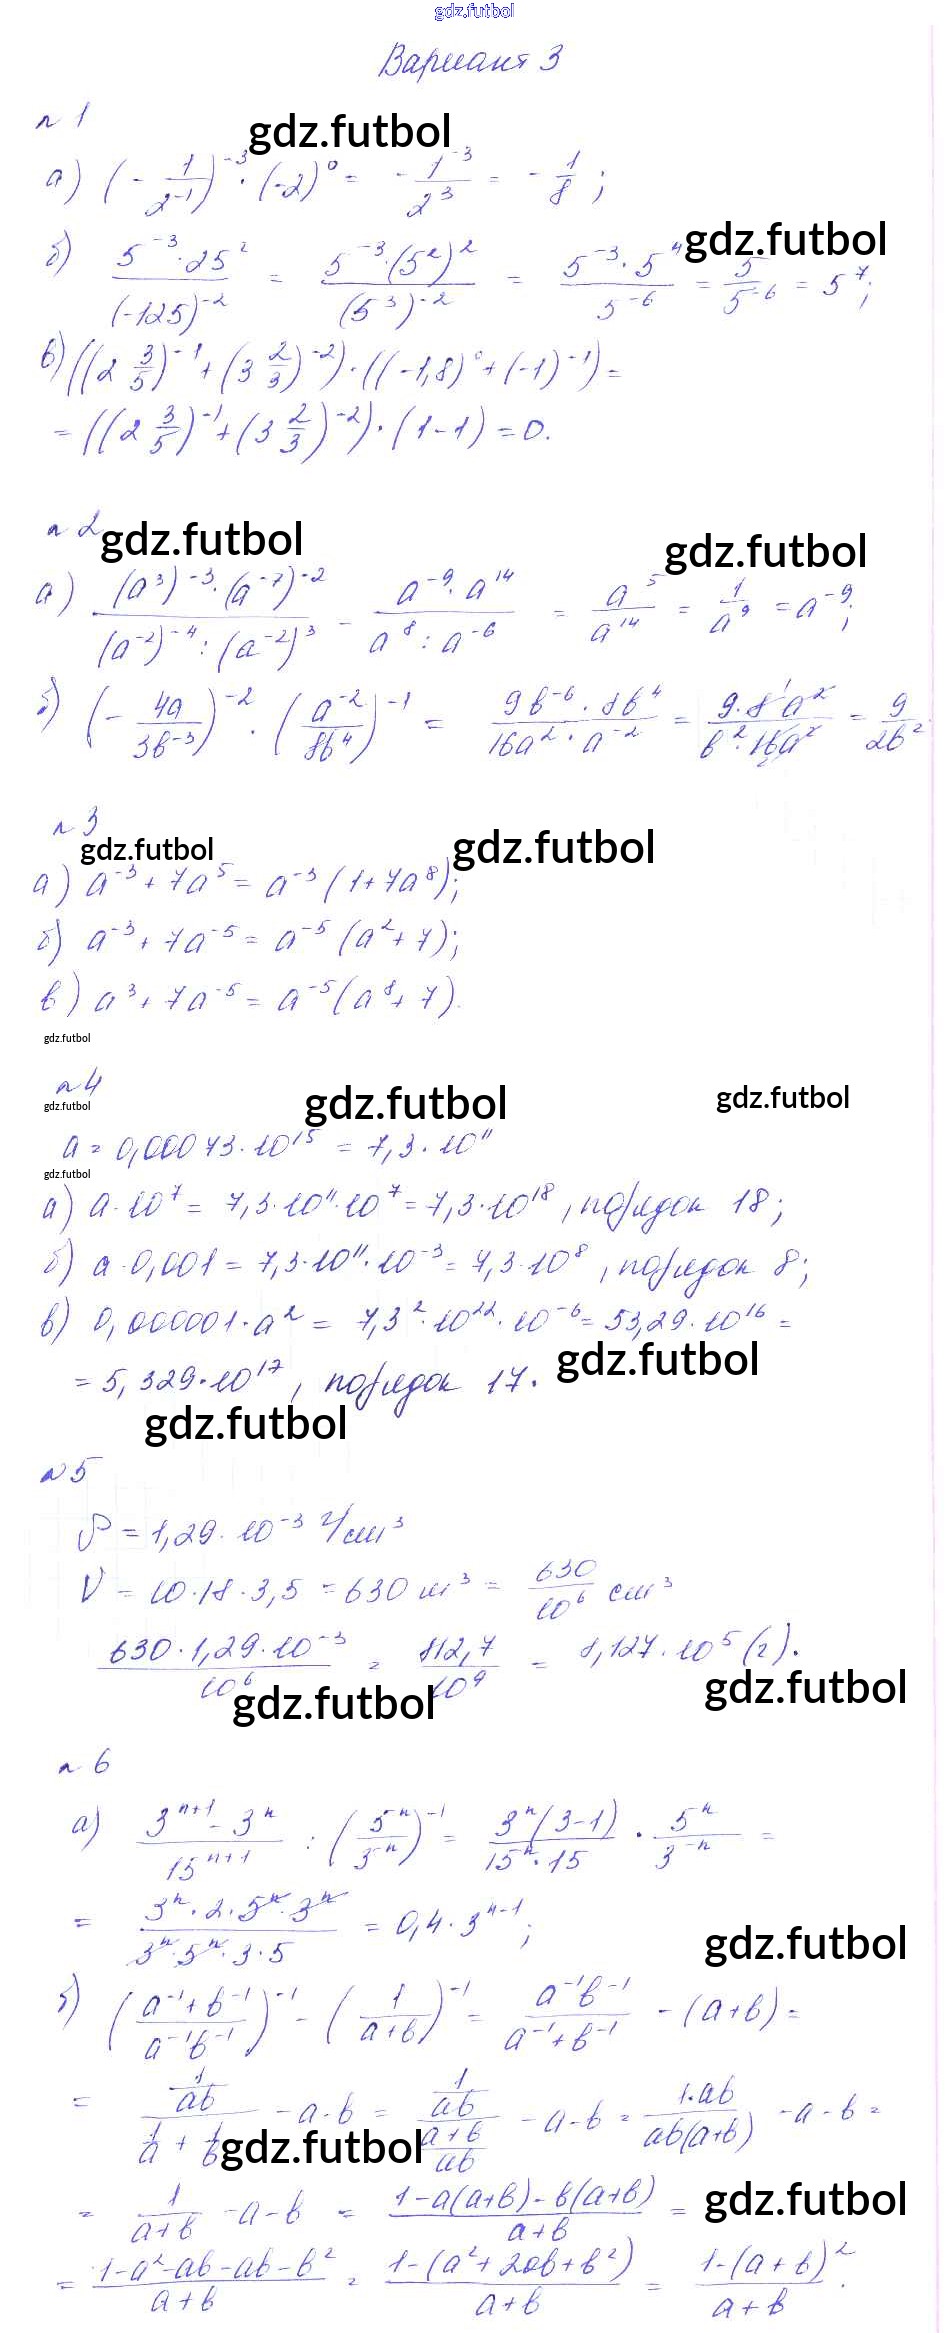 gdz.futbol
Вариант 3
n 1
gdz.futbol
а) (-1/2⁻¹)⁻³ · (-2)⁰ = -1⁻³/2³ = -1/8;
gdz.futbol
б) 5⁻³·25²/(-125)⁻² = 5⁻³·(5²)²/(5³)⁻² = 5⁻³·5⁴/5⁻⁶ = 5/5⁻⁶ = 5⁷;
в) ((2 3/5)⁻¹ + (3 2/3)⁻²)·((-1,8)⁰ + (-1)⁻¹) =
= ((2 3/5)⁻¹ + (3 2/3)⁻²)·(1-1) = 0.
n 2
gdz.futbol
gdz.futbol
а) (a³)⁻³·(a⁻⁷)⁻²/(a⁻²)⁻⁴:(a⁻²)³ = a⁻⁹·a¹⁴/a⁸:a⁻⁶ = a⁵/a¹⁴ = 1/a⁹ = a⁻⁹;
б) (-4a/3b⁻³)⁻² · (a⁻²/8b⁴)⁻¹ = 9b⁻⁶·8b⁴/16a²·a⁻² = 9·8a²/b²·16a² = 9/2b²
n 3
gdz.futbol
gdz.futbol
а) a⁻³ + 7a⁵ = a⁻³(1+7a⁸);
б) a⁻³ + 7a⁻⁵ = a⁻⁵(a²+7);
в) a³ + 7a⁻⁵ = a⁻⁵(a⁸+7).
gdz.futbol
n 4
gdz.futbol
gdz.futbol
gdz.futbol
a = 0,00073·10¹⁵ = 7,3·10¹¹
gdz.futbol
а) a·10⁷ = 7,3·10¹¹·10⁷ = 7,3·10¹⁸, порядок 18;
б) a·0,001 = 7,3·10¹¹·10⁻³ = 7,3·10⁸, порядок 8;
в) 0,000001·a² = 7,3²·10²²·10⁻⁶ = 53,29·10¹⁶ =
gdz.futbol
= 5,329·10¹⁷, порядок 17.
gdz.futbol
n 5
ρ = 1,29·10⁻³ г/см³
V = 10·18·3,5 = 630 м³ = 630/10⁶ см³
630·1,29·10⁻³/10⁶ = 812,7/10⁹ = 8,127·10⁵ (г).
gdz.futbol
gdz.futbol
n 6
а) 3ⁿ⁺¹ - 3ⁿ/15ⁿ⁺¹ : (5⁻ⁿ/3⁻ⁿ)⁻¹ = 3ⁿ(3-1)/15ⁿ·15 · 5ⁿ/3⁻ⁿ =
= 3ⁿ·2·5ⁿ·3ⁿ/3ⁿ·5ⁿ·3·5 = 0,4·3ⁿ⁻¹;
gdz.futbol
б) (a⁻¹+b⁻¹/a⁻¹b⁻¹)⁻¹ - (1/a+b)⁻¹ = a⁻¹b⁻¹/a⁻¹+b⁻¹ - (a+b) =
= 1/ab/1/a + 1/b - a - b = 1/ab/a+b/ab - a - b = 1·ab/ab(a+b) - a - b =
gdz.futbol
gdz.futbol
= 1/a+b - a - b = 1-a(a+b)-b(a+b)/a+b =
= 1-a²-ab-ab-b²/a+b = 1-(a²+2ab+b²)/a+b = 1-(a+b)²/a+b.